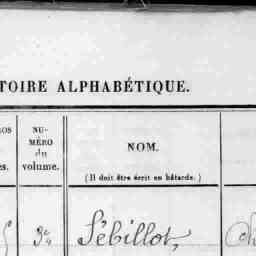 TOIRE ALPHABÉTIQUE.
ROS
es.
NU-
MÉRO
du
volume.
NOM.
(Il doit être écrit en bâtarde.)
Sébillot,